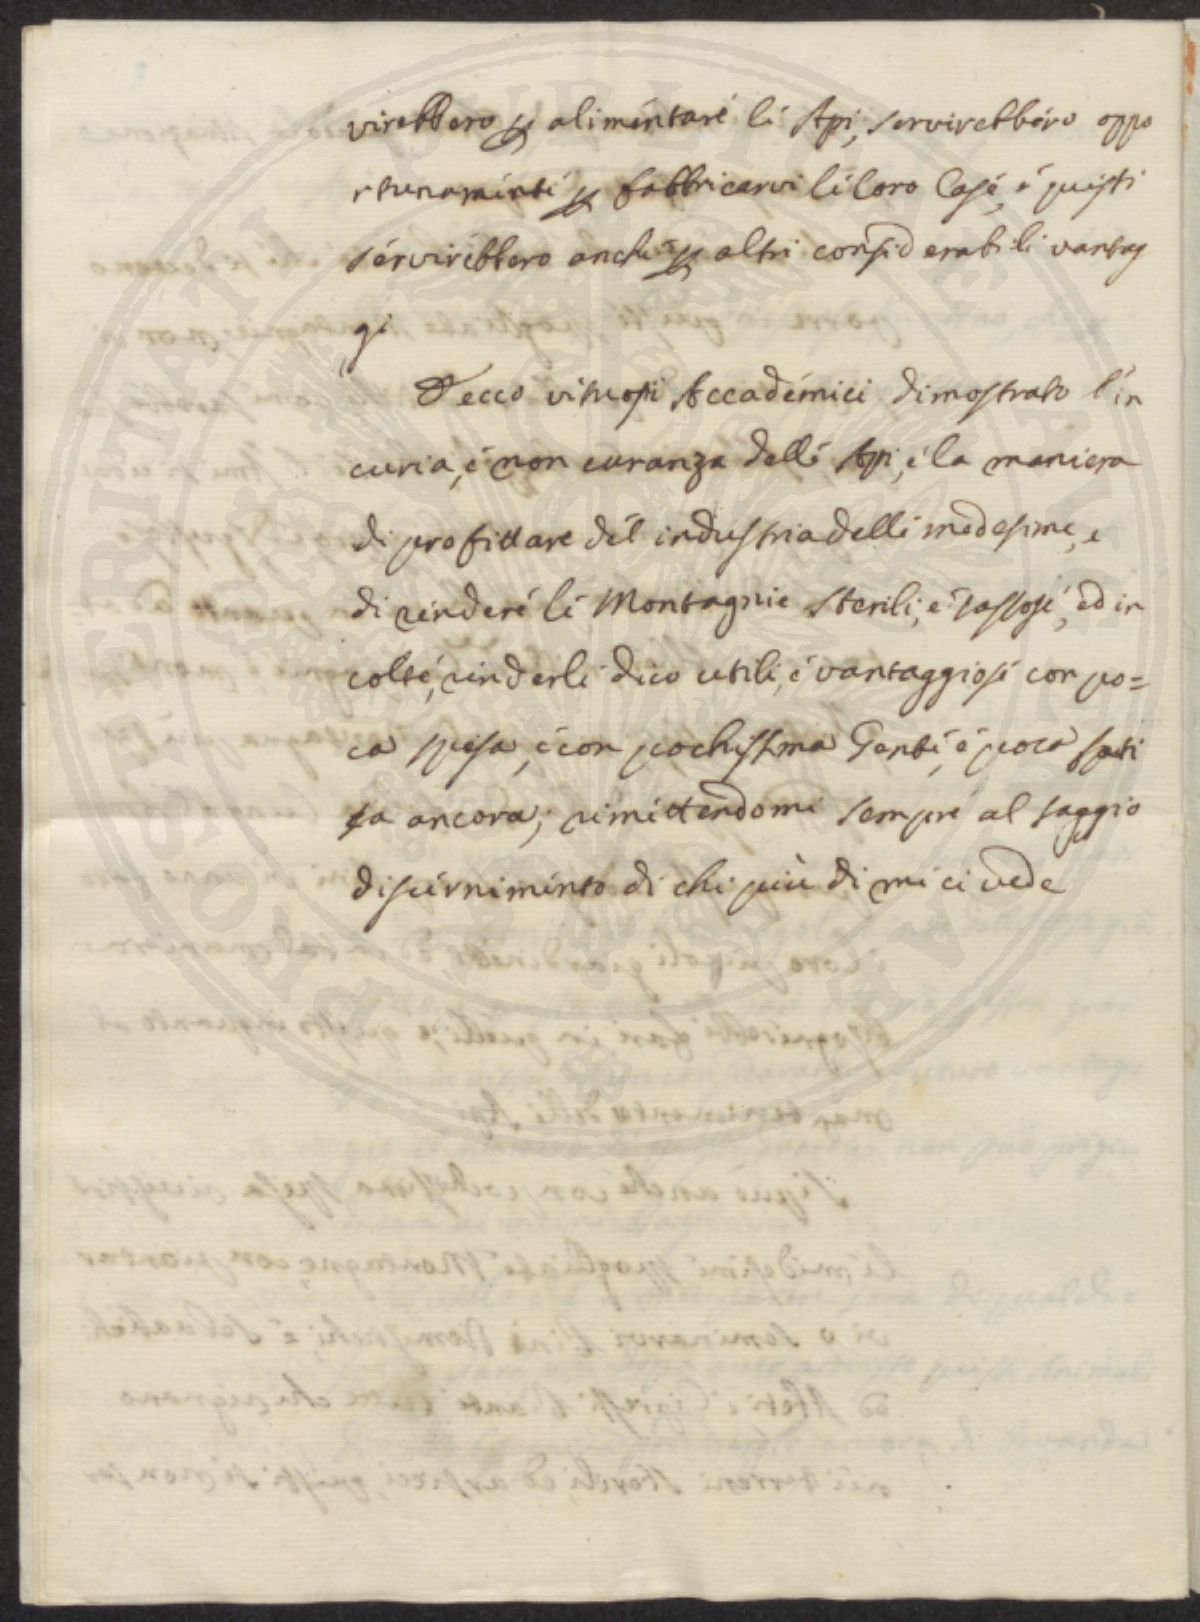 virebbero p alimentare le Api, servirebbero oppo
rtunamente p fabbricarvi le loro Case, e questi
servirebbero anche p altri considerabili vantag
gi
Ecco virtuosi Accademici dimostrato l'in
curia, e non curanza delle Api, e la maniera
di profittare del industria delle medesime, e
di rendere le Montagnie sterili, e sassose, ed in
colte, renderle dico utili, e vantaggiose con po=
ca spesa, e con pochissima Gente, e poca fati
ca ancora; rimettendomi sempre al saggio
discernimento di chi più di me ci vede
PROSPERITATI PUBLICAE AUGENDAE